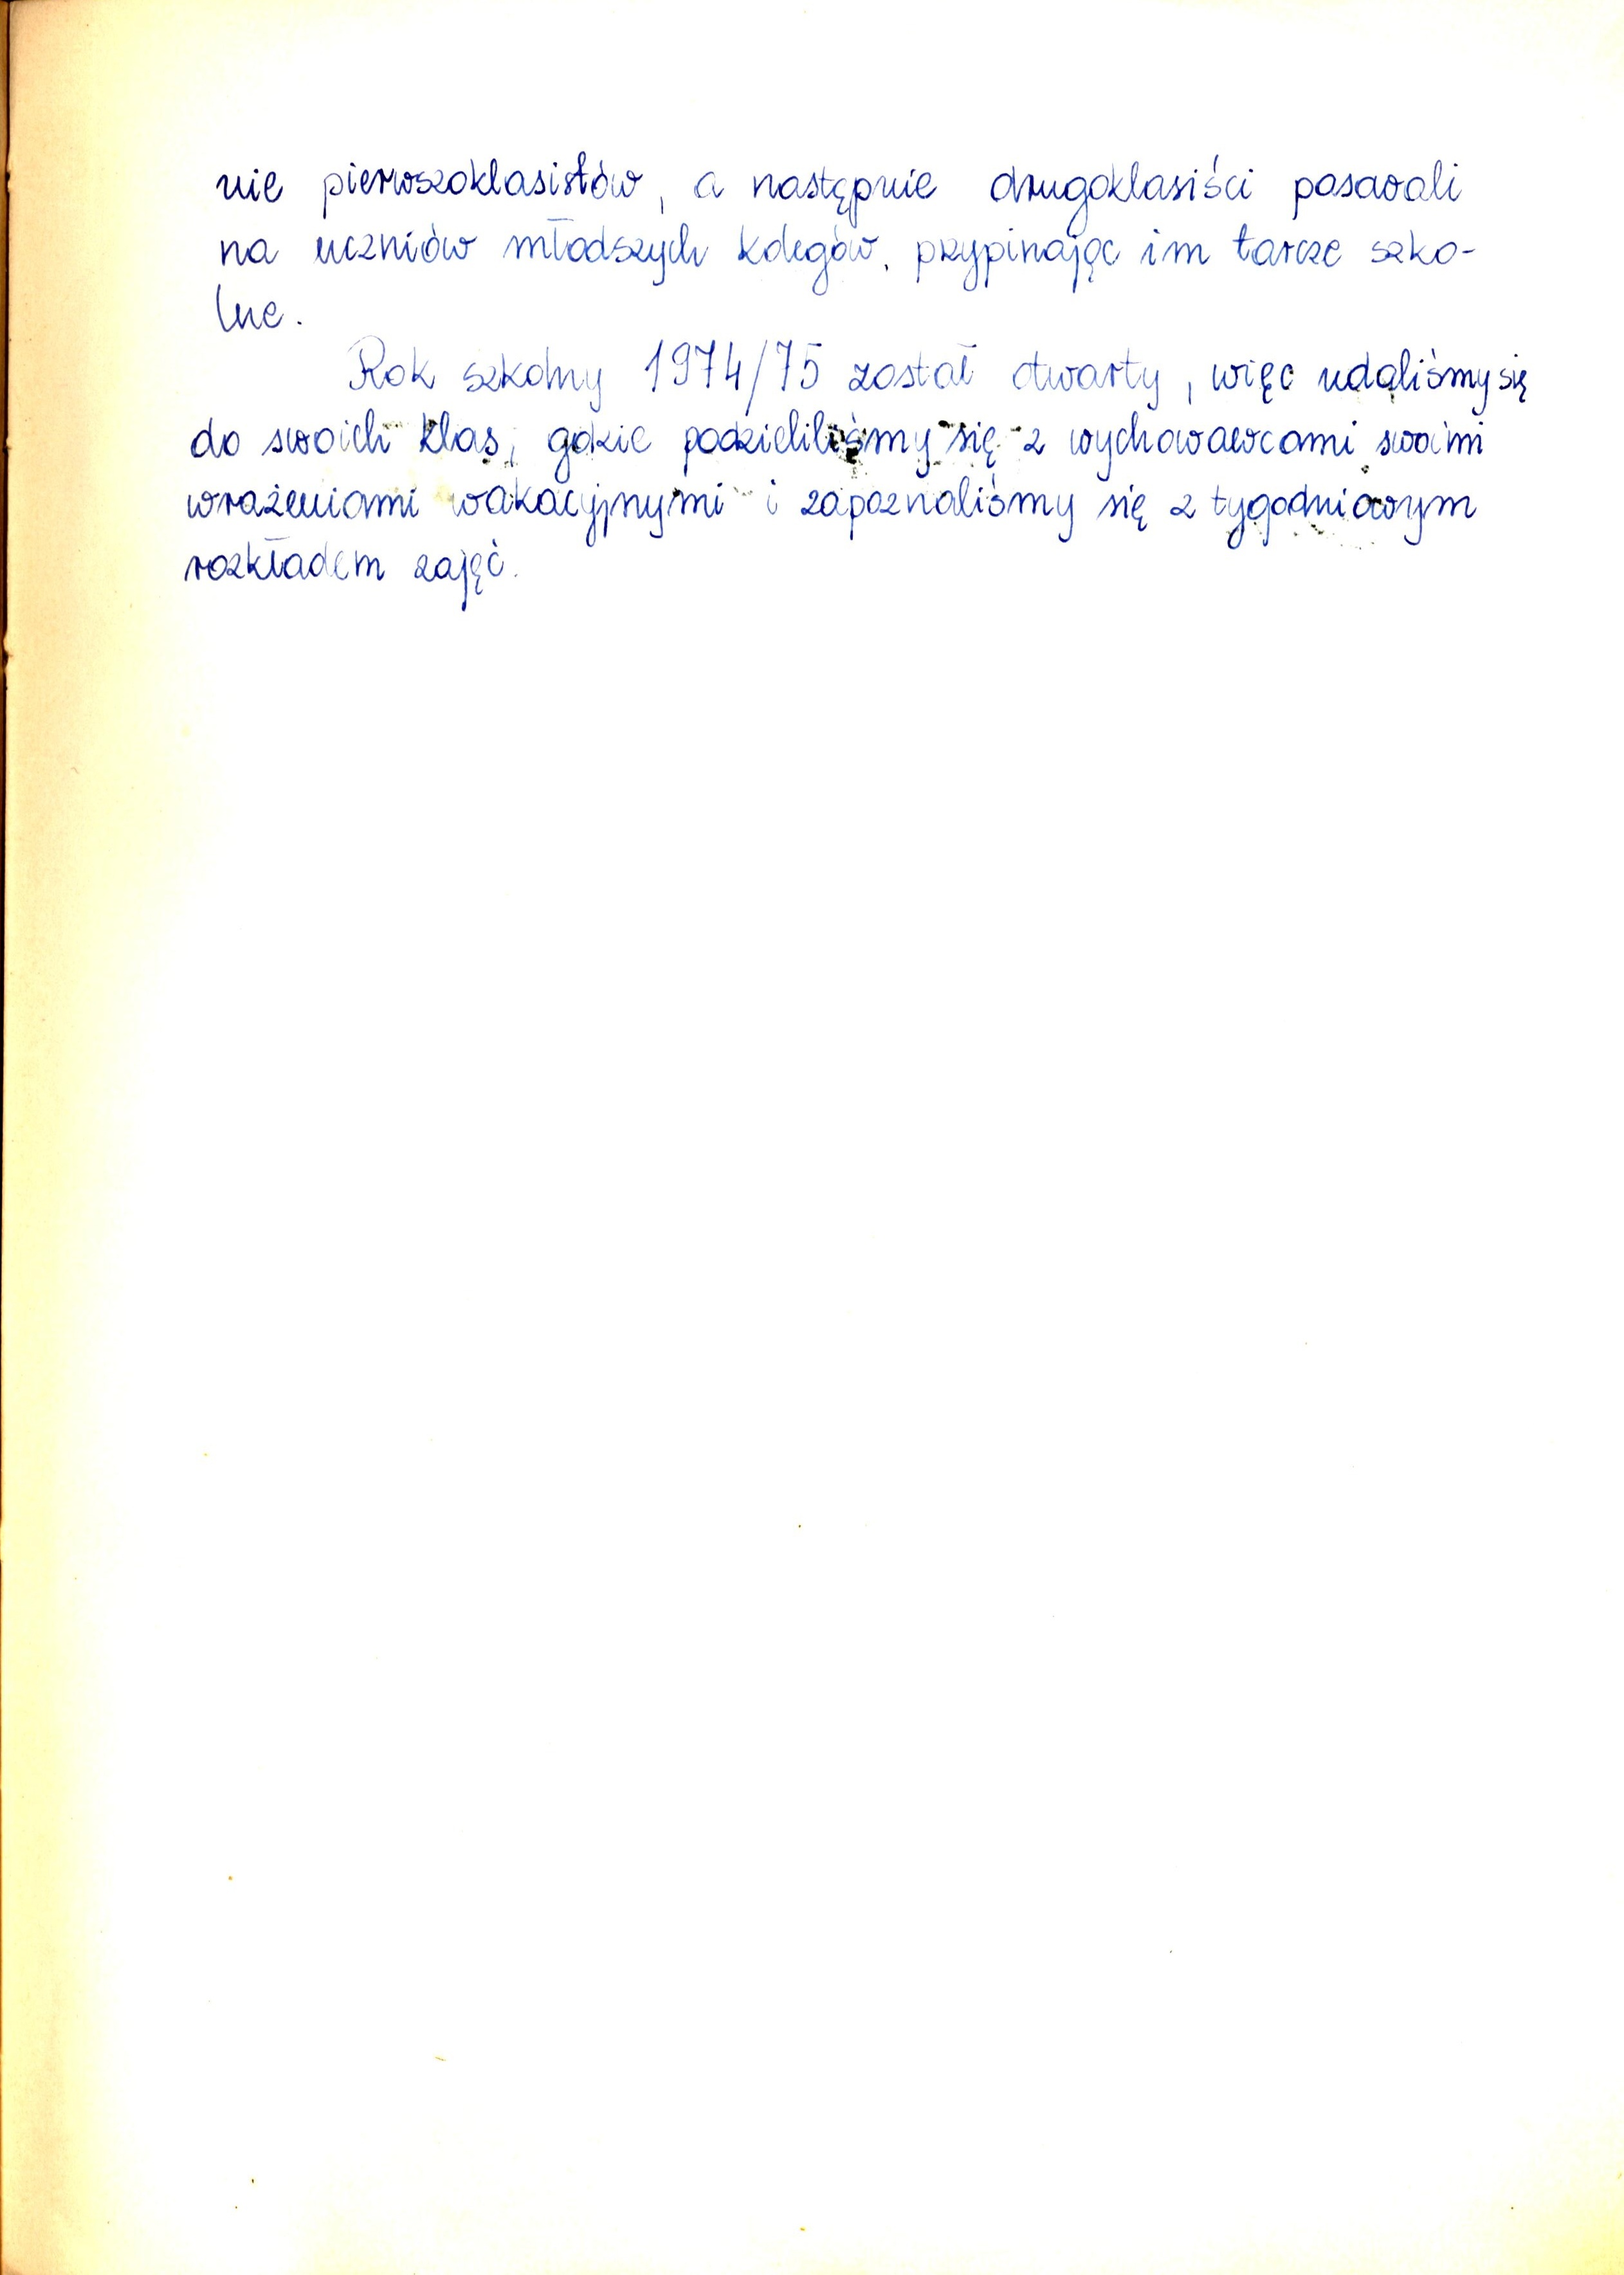 nie pierwszoklasistów, a następnie drugoklasiści pasowali
na uczniów młodszych kolegów, przypinając im tarcze szko-
lne.
Rok szkolny 1974/75 został otwarty, więc udaliśmy się
do swoich klas, gdzie podzieliliśmy się z wychowawcami swoimi
wrażeniami wakacyjnymi i zapoznaliśmy się z tygodniowym
rozkładem zajęć.